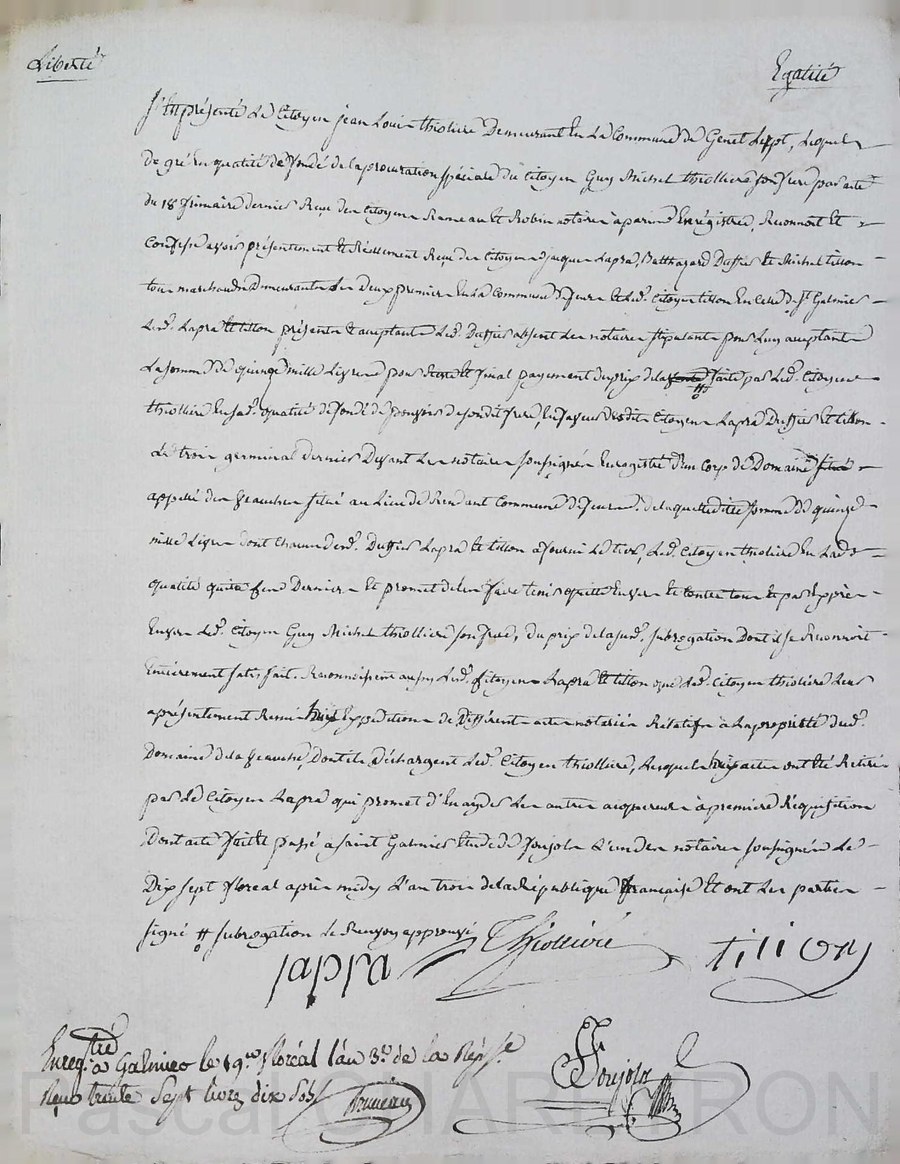 Liberté
Egalité
S'est présenté Le Citoyen jean Louis thioliere Demeurant En La Commune de Genet Lerpt, Lequel
de gré En qualité de fondé de la procuration speciale du Citoyen Guy Michel thiolliere son frere par acte
du 18 frimaire dernier Reçu des Citoyens Rameau et Robin notaires à paris Enrégistrée, Reconnoit Et
Confesse avoir présentement et Réellement Reçu des Citoyens jacques Lapra, Balthazard Duffieu et Michel tillon
tous marchands Demeurants Les Deux premiers En La Commune De feurs Et Led. Citoyen tillon En Celle De St Galmier
Led. Lapra et tillon présents et acceptants Led. Duffieu absent Les notaires stipulants pour Luy acceptants
La somme de quinze mille Livres pour Reste et final payement du prix de la vente faite par Led. Citoyen
thiolliere En sad. qualité de fondé de pouvoir de son dit frere, En faveur desdits Citoyens Lapra Duffieu Et tillon
Le trois germinal dernier Devant Les notaires soussignés Enregistré D'un Corps De Domaine situé
appellé des situé au Lieu de Commune De feurs. De laquelle ditte somme De quinze
mille Livres dont Chacun desd. Duffieu Lapra et tillon a fourni Le tiers, Led. Citoyen thioliere En Lad.
qualité quitte Ces Derniers Et promet de Les faire tenir quitte Envers Et Contre tous Et par Exprès
Envers Led. Citoyen Guy Michel thiolliere son frere, du prix de la susd. subrogation Dont il se Reconnoit
Entièrement satisfait. Reconnoissent aussy Led. Citoyens Lapra Et tillon que Led. Citoyen thioliere Leur
a présentement Remis huit Expeditions de Différents actes notariés Rélatifs à La propriété dud.
Domaine de la Dont ils Déchargent Led. Citoyen thiolliere, Lesquels huit actes ont été Retirés
par Le Citoyen Lapra qui promet d'En aider Les autres acquereurs à première Réquisition
Dont acte fait et passé a saint Galmier Etude De foujols L'un des notaires soussignés Le
Dix sept floreal après midy L'an trois de la République française Et ont Les parties
signé # subrogation Le Renvoy approuvé
Thiollieré
lapra
tillon
Enregtré à Galmier le 19e floréal l'an 3e de la Répe
Reçu trente Sept livres dix Sols
Foujols